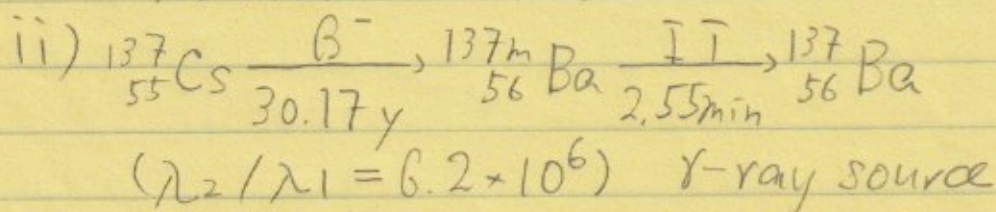 ii) ¹³⁷₅₅Cs —β⁻/30.17y→ ¹³⁷ᵐ₅₆Ba —IT/2.55min→ ¹³⁷₅₆Ba
(λ₂/λ₁ = 6.2×10⁶) γ-ray source